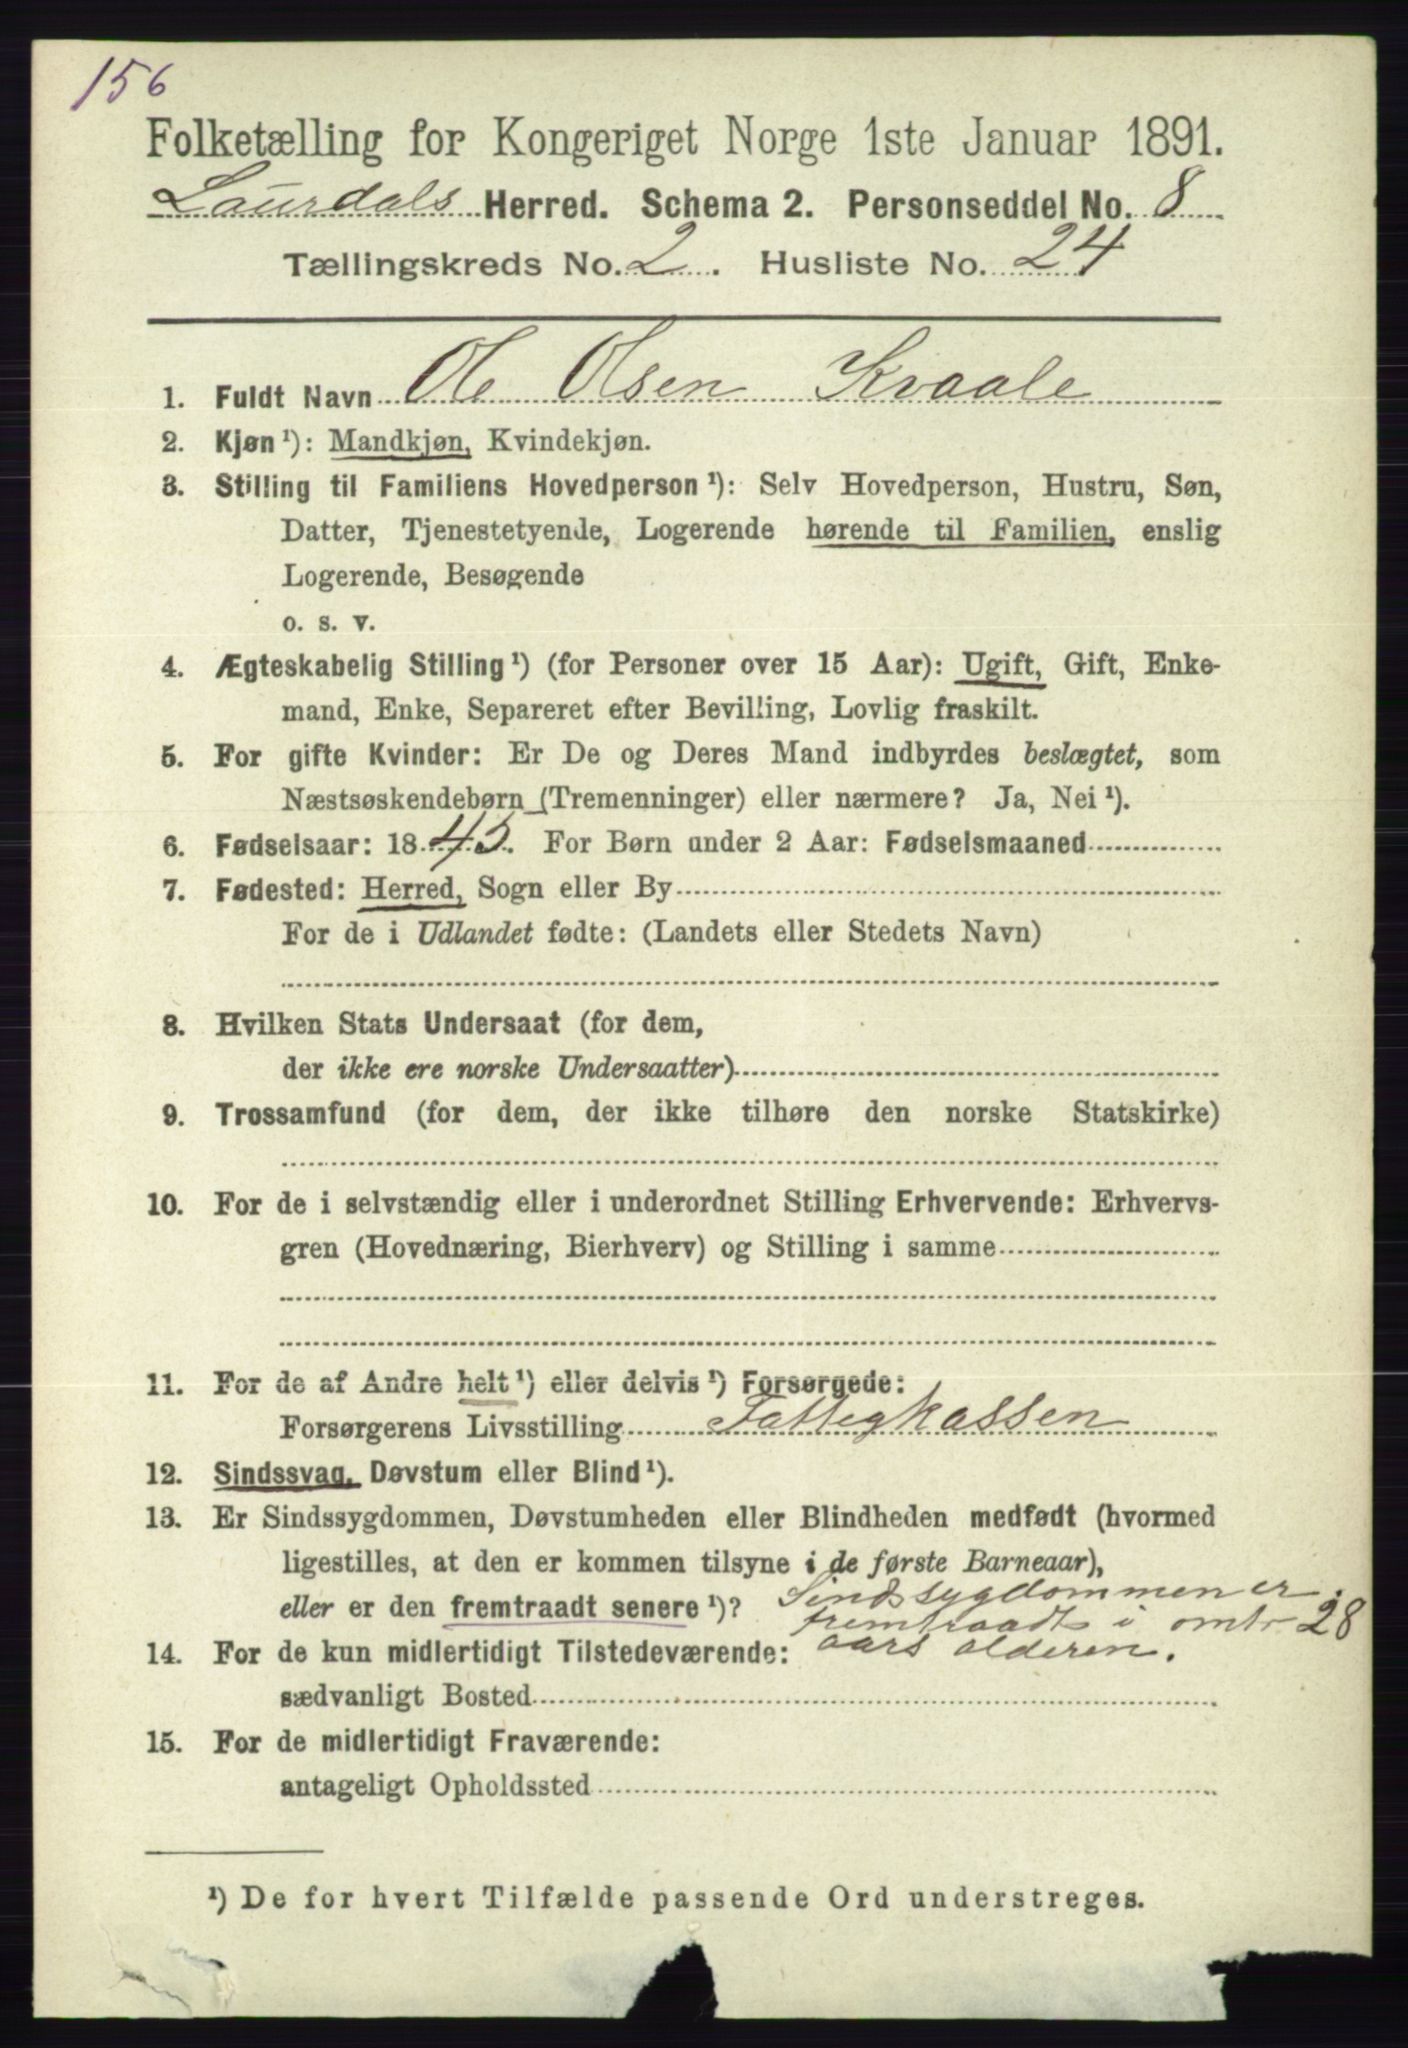 156
Folketælling for Kongeriget Norge 1ste Januar 1891.
Laurdals Herred. Schema 2. Personseddel No. 8
Tællingskreds No. 2. Husliste No. 24
1. Fuldt Navn Ole Olsen Kvaale
2. Kjøn ¹): Mandkjøn, Kvindekjøn.
3. Stilling til Familiens Hovedperson ¹): Selv Hovedperson, Hustru, Søn,
Datter, Tjenestetyende, Logerende hørende til Familien, enslig
Logerende, Besøgende
o. s. v.
4. Ægteskabelig Stilling ¹) (for Personer over 15 Aar): Ugift, Gift, Enke-
mand, Enke, Separeret efter Bevilling, Lovlig fraskilt.
5. For gifte Kvinder: Er De og Deres Mand indbyrdes beslægtet, som
Næstsøskendebørn (Tremenninger) eller nærmere? Ja, Nei ¹).
6. Fødselsaar: 1845. For Børn under 2 Aar: Fødselsmaaned
7. Fødested: Herred, Sogn eller By
For de i Udlandet fødte: (Landets eller Stedets Navn)
8. Hvilken Stats Undersaat (for dem,
der ikke ere norske Undersaatter)
9. Trossamfund (for dem, der ikke tilhøre den norske Statskirke)
10. For de i selvstændig eller i underordnet Stilling Erhvervende: Erhvervs-
gren (Hovednæring, Bierhverv) og Stilling i samme
11. For de af Andre helt ¹) eller delvis ¹) Forsørgede:
Forsørgerens Livsstilling Fattigkassen
12. Sindssvag, Døvstum eller Blind ¹).
13. Er Sindssygdommen, Døvstumheden eller Blindheden medfødt (hvormed
ligestilles, at den er kommen tilsyne i de første Barneaar),
eller er den fremtraadt senere ¹)? Sindssygdommen er
fremtraadt i omtr. 28
aars alderen.
14. For de kun midlertidigt Tilstedeværende:
sædvanligt Bosted
15. For de midlertidigt Fraværende:
antageligt Opholdssted
¹) De for hvert Tilfælde passende Ord understreges.